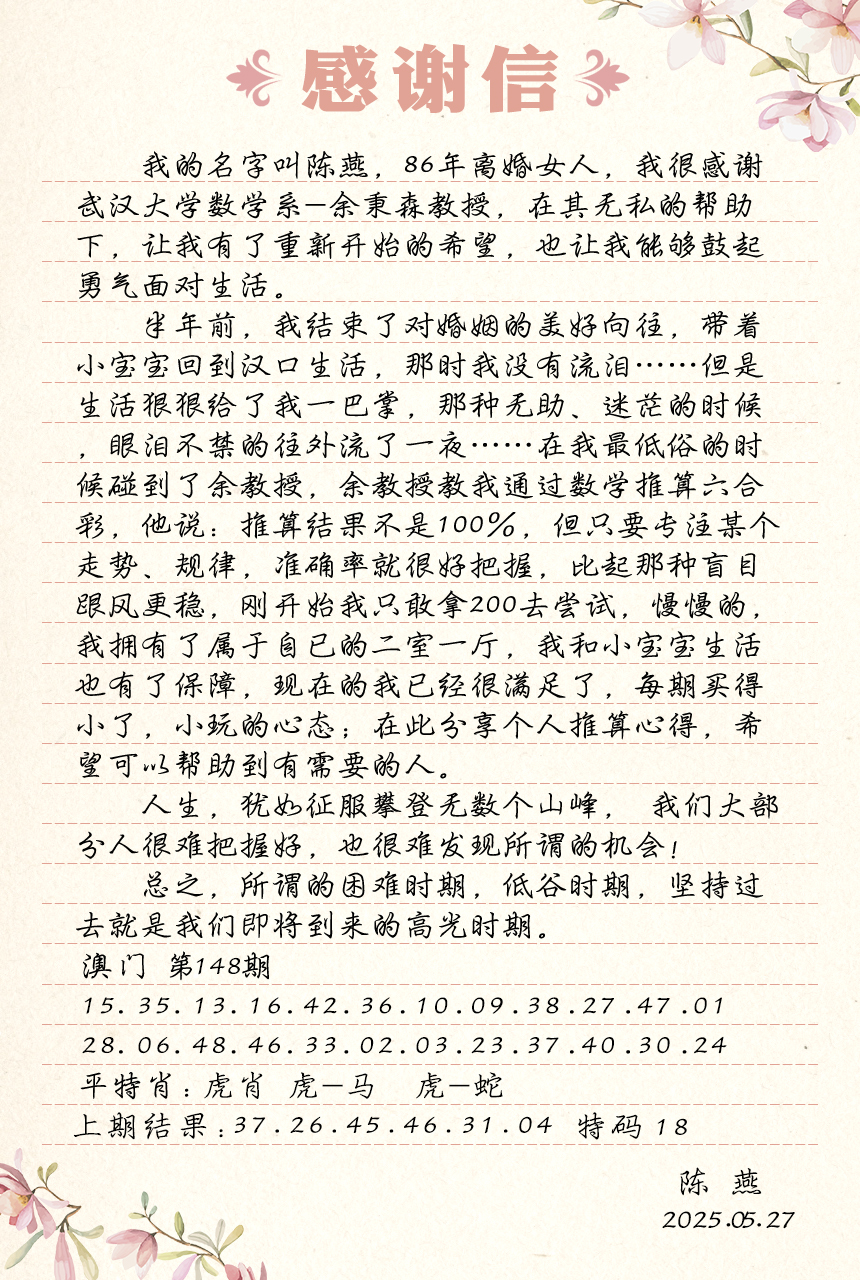 感谢信
我的名字叫陈燕，86年离婚女人，我很感谢
武汉大学数学系—余秉森教授，在其无私的帮助
下，让我有了重新开始的希望，也让我能够鼓起
勇气面对生活。
半年前，我结束了对婚姻的美好向往，带着
小宝宝回到汉口生活，那时我没有流泪……但是
生活狠狠给了我一巴掌，那种无助、迷茫的时候
，眼泪不禁的往外流了一夜……在我最低俗的时
候碰到了余教授，余教授教我通过数学推算六合
彩，他说：推算结果不是100%，但只要专注某个
走势、规律，准确率就很好把握，比起那种盲目
跟风更稳，刚开始我只敢拿200去尝试，慢慢的，
我拥有了属于自已的二室一厅，我和小宝宝生活
也有了保障，现在的我已经很满足了，每期买得
小了，小玩的心态；在此分享个人推算心得，希
望可以帮助到有需要的人。
人生，犹如征服攀登无数个山峰， 我们大部
分人很难把握好，也很难发现所谓的机会！
总之，所谓的困难时期，低谷时期，坚持过
去就是我们即将到来的高光时期。
澳门 第148期
15.35.13.16.42.36.10.09.38.27.47.01
28.06.48.46.33.02.03.23.37.40.30.24
平特肖：虎肖 虎—马 虎—蛇
上期结果：37.26.45.46.31.04 特码 18
陈 燕
2025.05.27